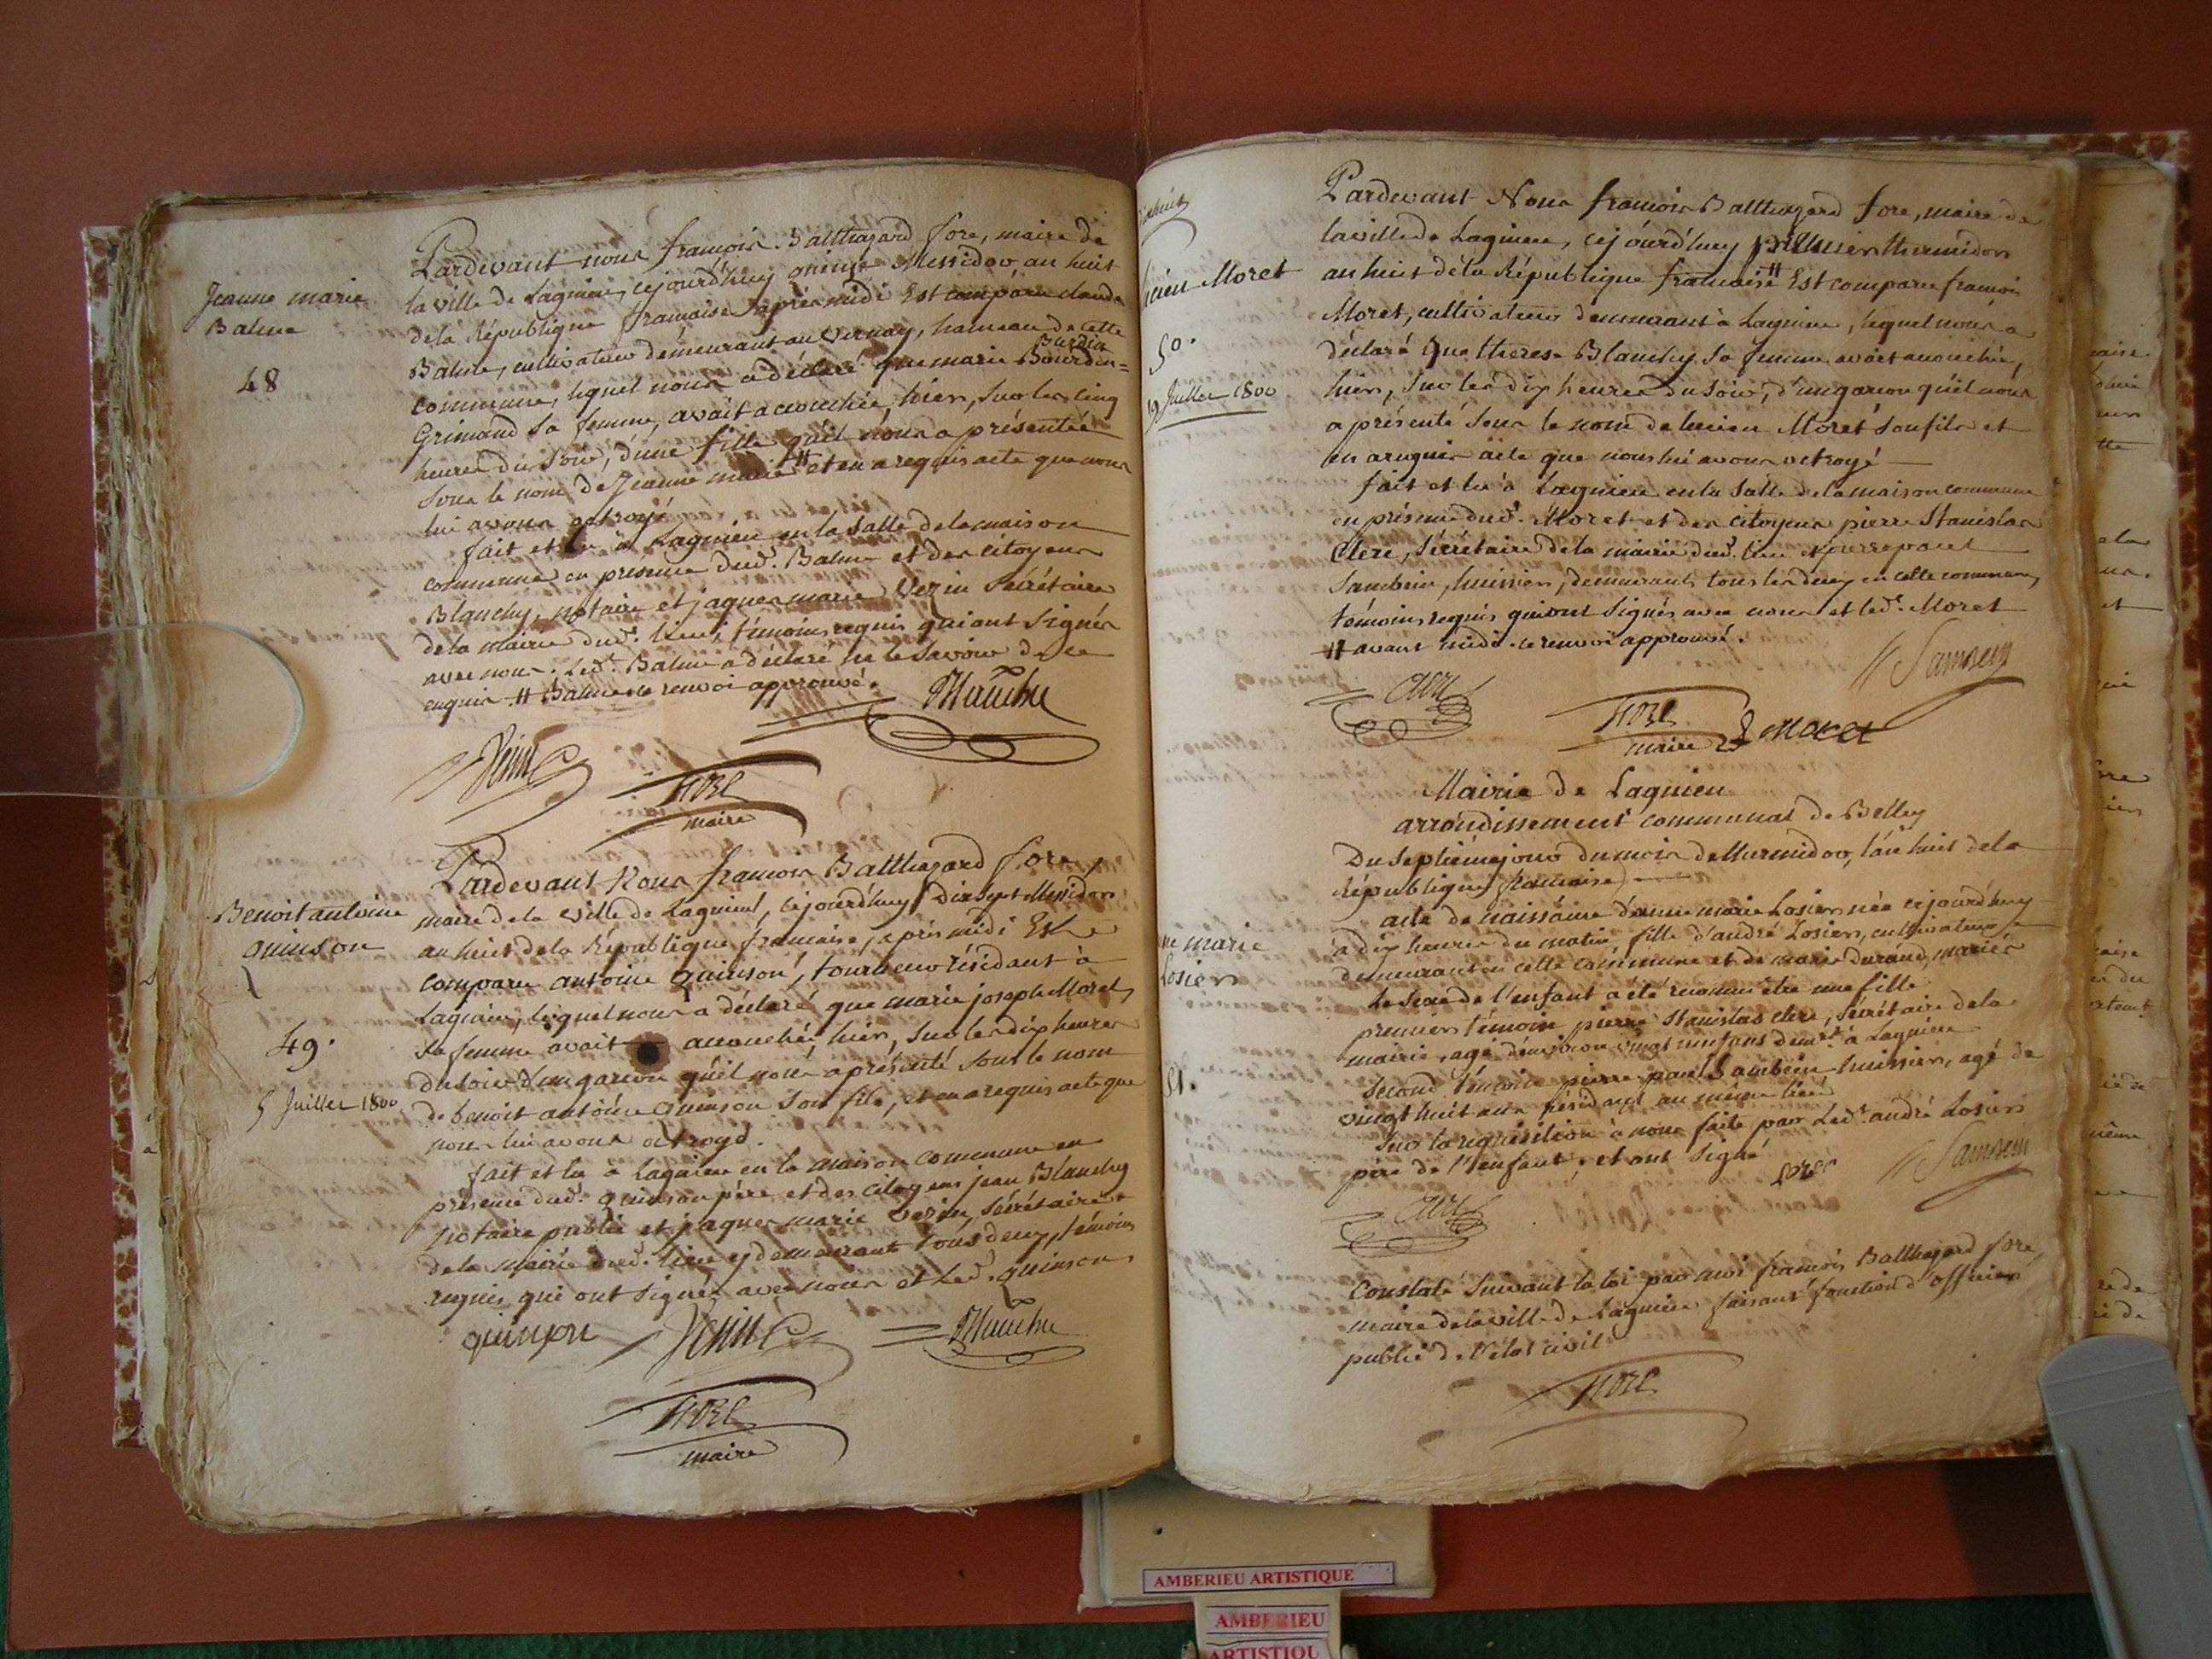 Jeanne marie
Balme
48
Pardevant nous françois Balthazard fore, maire de
la ville de Lagnieu, cejourd'huy quinze Messidor an huit
dela République française après midi Est comparu claude
Balme, cultivateur demeurant au vernay, hameau de cette
commune, lequel nous a déclaré que marie Bourdin=
Burdin
Grimand sa femme, avait accouchée, hier, sur les cinq
heures du soir, d'une fille qu'il nous a présentée
sous le nom de Jeanne marie # et en a requis acte que nous
lui avons octroyé
fait et lu à Lagnieu en la salle dela maison
commune en presence dud. Balme et des citoyens
Blanchy, notaire et jaques marie Vezin secrétaire
dela mairie dud. lieu, témoins requis qui ont signés
avec nous. Led. Balme a déclaré ne le savoir de ce
enquis # Balme le renvoi approuvé.
fore
maire
Benoit antoine
quinson
49.
5 Juillet 1800
Pardevant Nous françois Balthazard fore,
maire dela ville de Lagnieu, cejourd'huy Dix Sept Messidor
an huit dela République française, après midi Est
comparu antoine quinson, tourneur résidant à
Lagnieu, lequel nous a déclaré que marie joseph Moret,
sa femme avait accouchée, hier, sur les dix heures
du soir d'un garçon qu'il nous a présenté sous le nom
de benoit antoine quinson son fils, et en a requis acte que
nous lui avons octroyé.
fait et lu à lagnieu en la maison commune en
presence dud. quinson père et des citoyens jean Blanchy
Notaire public et jaques marie vezin, secrétaire
dela mairie dud. lieu y demeurants tous deux, témoins
requis qui ont signés avec nous et led. quinson
quinson
fore
maire
Moret
50.
19 Juillet 1800
Pardevant Nous françois Balthazard fore, maire de
la ville de Lagnieu, cejourd'huy premier thermidor
an huit dela République française # Est comparu françois
Moret, cultivateur demeurant à Lagnieu, lequel nous a
déclaré Que therese Blanchy sa femme avait accouchée,
hier, sur les dix heures du soir, d'un garçon qu'il nous
a présenté sous le nom de lucien Moret son fils et
en a requis acte que nous lui avons octroyé
fait et lu à Lagnieu en la salle dela maison commune
en présence dud. Moret et des citoyens pierre Stanislas
Clerc, sécrétaire dela mairie dud. lieu
Sambein, huissier, demeurants tous les deux en cette commune,
témoins requis qui ont signés avec nous et led. Moret
# avant midi. le renvoi approuvé.
Clerc
Sambein
fore
maire
Moret
Mairie de Lagnieu
arrondissement communal de Belley
Du septième jour du mois de thermidor, l'an huit dela
République française
marie
Losier
51.
acte de naissance d'anne marie Losier née cejourd'huy
à dix heures du matin, fille d'andré Losier, cultivateur
demeurant en cette commune et de marie durand, mariés
Le sexe de l'enfant a été reconnu être une fille
premier témoin pierre Stanislas clerc, sécrétaire dela
mairie, agé d'environ vingt neuf ans demt à Lagnieu
second témoin pierre paul Sambein huissier, agé de
vingt huit ans résidant au même lieu
sur la réquisition à nous faite par Led. andré Losier
père de l'enfant, et ont signé
fore
Sambein
Clerc
Constaté suivant la loi par moi françois Balthazard fore,
maire dela ville de Lagnieu faisant fonction d'officier
public de l'état civil
fore
AMBERIEU ARTISTIQUE
AMBERIEU
ARTISTIQU